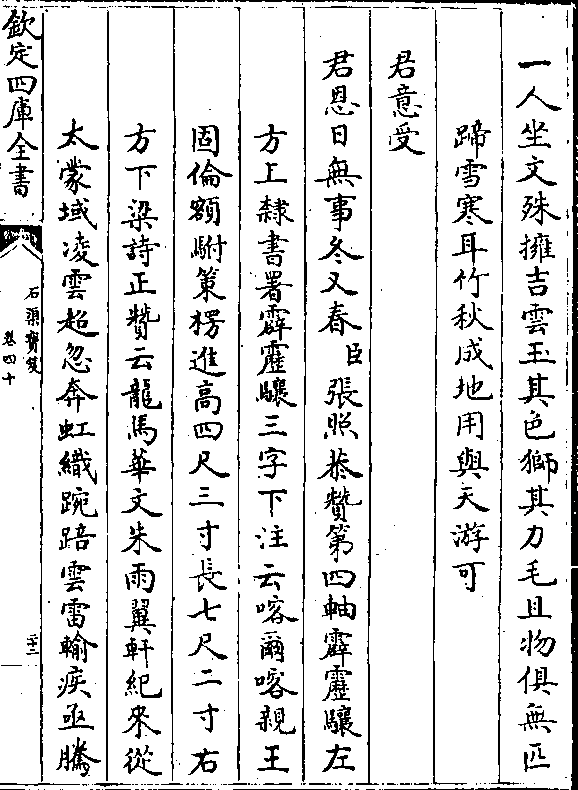 一人坐文殊擁吉雲玉其色獅其力毛且物俱無匹
蹄雪寒耳竹秋成地用與天游可
君意受
君恩日無事冬又春臣張照恭贊第四軸霹靂驤左
方上隸書署霹靂驤三字下注云喀爾喀親王
固倫額駙策楞進高四尺三寸長七尺二寸右
方下梁詩正贊云龍馬華文朱雨翼軒紀來從
太蒙域凌雲超忽奔虹織踠踣雲雷輸疾亟騰
欽定四庫全書
石渠寶笈
卷四十
二十三